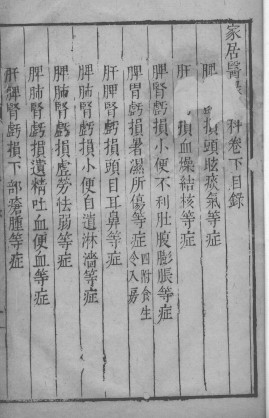 家居醫 科卷下目錄
脾 損頭眩痰氣等症
肝 損血燥結核等症
脾腎虧損小便不利肚腹膨脹等症
脾胃虧損暑濕所傷等症 附食生冷入房
肝脾腎虧損頭目耳鼻等症
脾肺腎虧損小便自遺淋濇等症
脾肺腎虧損虛勞怯弱等症
脾肺腎虧損遺精吐血便血等症
肝脾腎虧損下部瘡腫等症